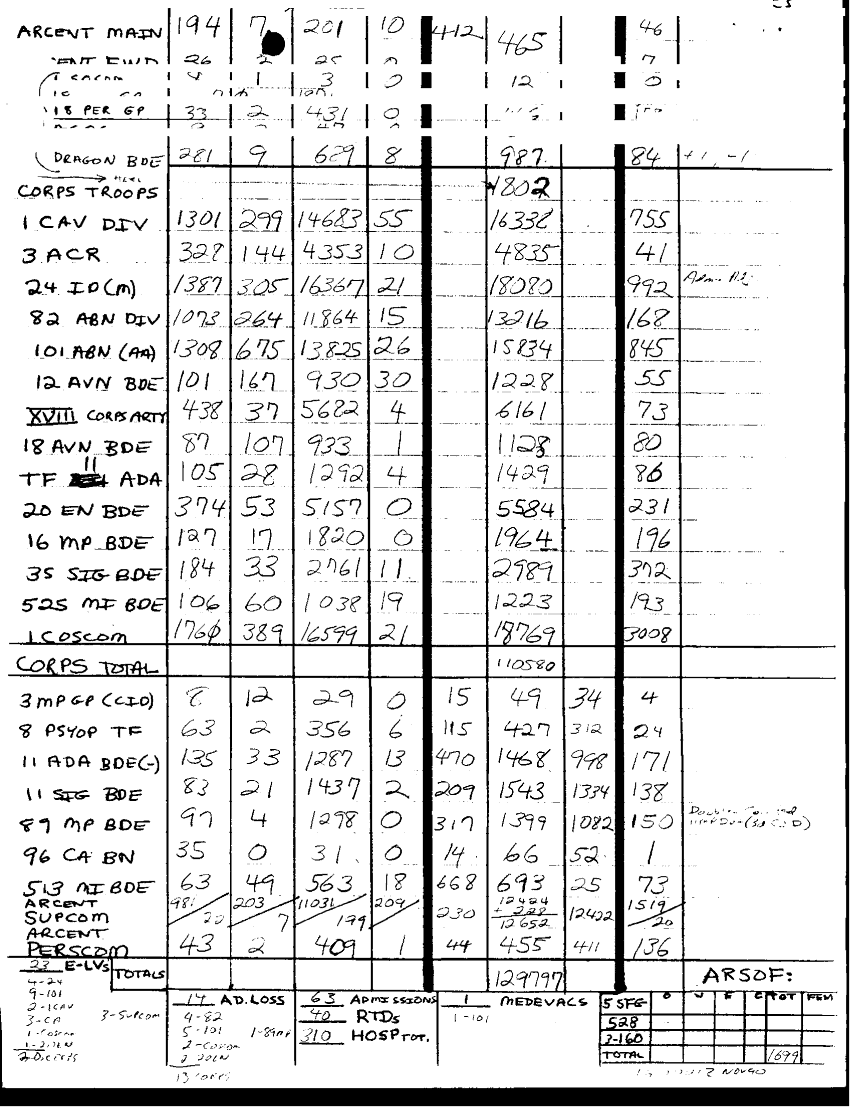 ARCENT MAIN 194 7 201 10 412 465 46
26 2 25 7
1 3 0 12 0
18 PER GP 33 2 431 0
DRAGON BDE 281 9 629 8 987 84 +1, -1
CORPS TROOPS 1802
1 CAV DIV 1301 299 14683 55 16338 755
3 ACR 328 144 4353 10 4835 41
24 ID(M) 1387 305 16367 21 18080 992
82 ABN DIV 1073 264 11864 15 13216 168
101 ABN (AA) 1308 675 13825 26 15834 845
12 AVN BDE 101 167 930 30 1228 55
XVIII CORPS ARTY 438 37 5682 4 6161 73
18 AVN BDE 87 107 933 1 1128 80
TF 11 ADA 105 28 1292 4 1429 86
20 EN BDE 374 53 5157 0 5584 231
16 MP BDE 127 17 1820 0 1964 196
35 SIG BDE 184 33 2761 11 2989 372
525 MI BDE 106 60 1038 19 1223 193
1 COSCOM 1760 389 16599 21 18769 3008
CORPS TOTAL 110580
3 MP GP (CID) 8 12 29 0 15 49 34 4
8 PSYOP TF 63 2 356 6 115 427 312 24
11 ADA BDE(-) 135 33 1287 13 470 1468 998 171
11 SIG BDE 83 21 1437 2 209 1543 1334 138
89 MP BDE 97 4 1298 0 317 1399 1082 150
96 CA BN 35 0 31 0 14 66 52 1
513 MI BDE 63 49 563 18 668 693 25 73
ARCENT SUPCOM 981/22 203/7 11031/199 209/ 230 12424 + 228 12652 12422 1519/20
ARCENT PERSCOM 43 2 409 1 44 455 411 136
TOTALS 129797 ARSOF:
23 E-LVs
4-24
9-101
2-1CAV
3-CA 3-SUPCOM
17 AD. LOSS
4-82
5-101 1-89MP
2-COSCOM
2 20EN
13 CORPS
63 ADMISSIONS
40 RTDs
310 HOSP TOT.
1 MEDEVACS
1-101
O W E C TOT FEM
5 SFG
528
3-160
TOTAL 1699
NOV90